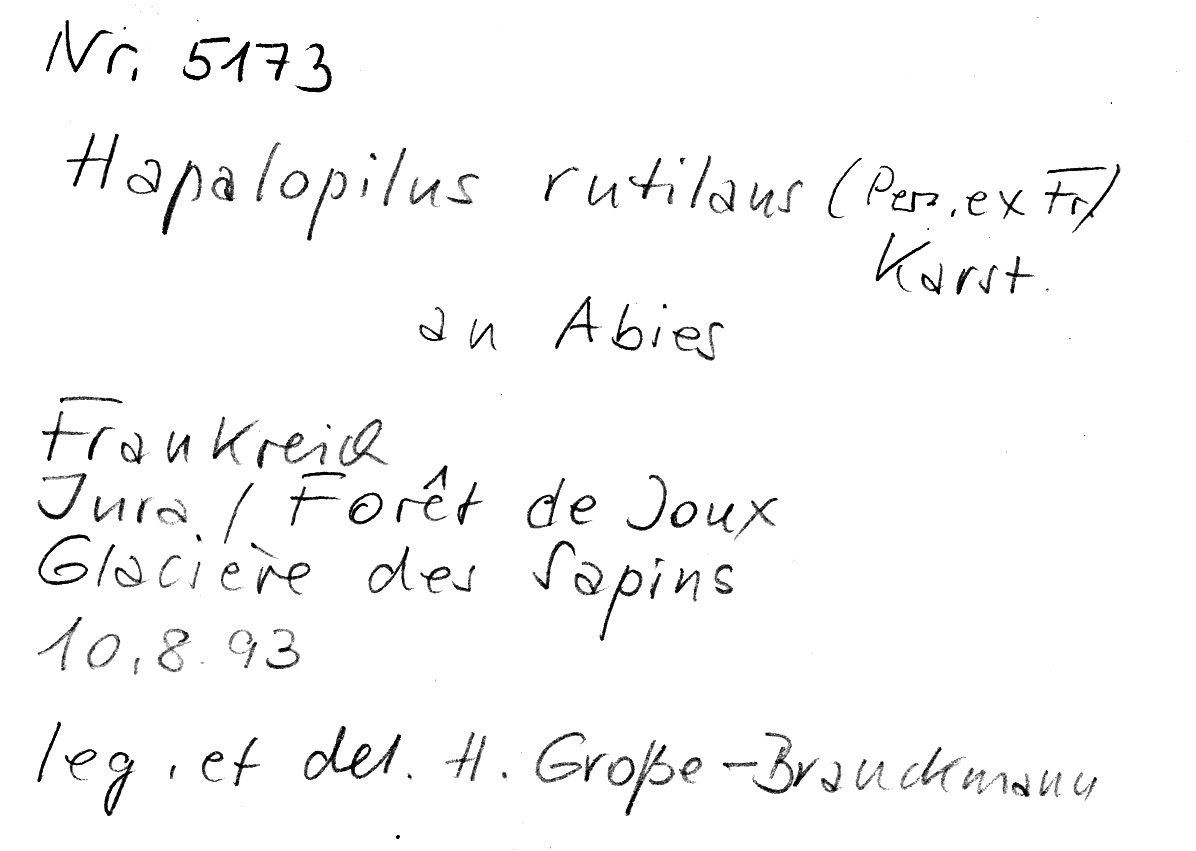 Nr. 5173
Hapalopilus rutilans (Pers. ex Fr.)
Karst.
an Abies
Frankreich
Jura / Forêt de Joux
Glacière des Sapins
10.8.93
leg. et det. H. Große-Brauckmann